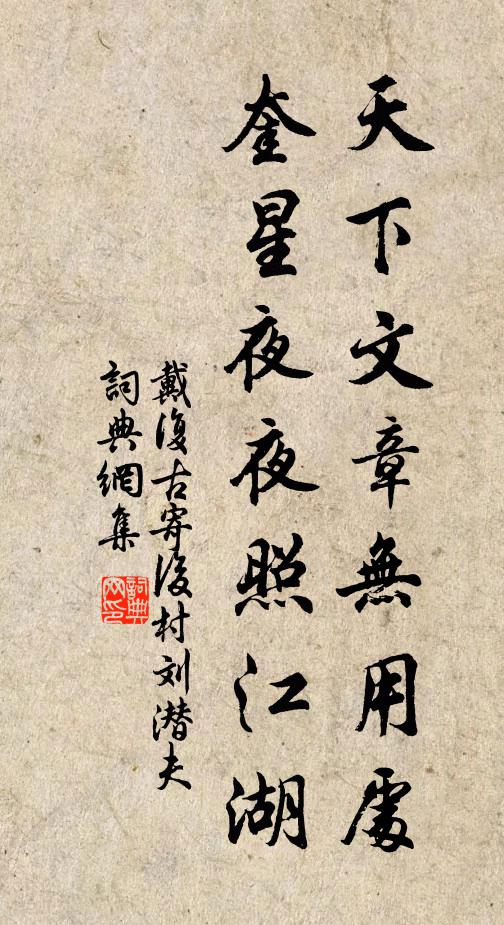 天下文章無用處
奎星夜夜照江湖
戴復古寄後村刘潜夫
詞典網集
詞典
网印